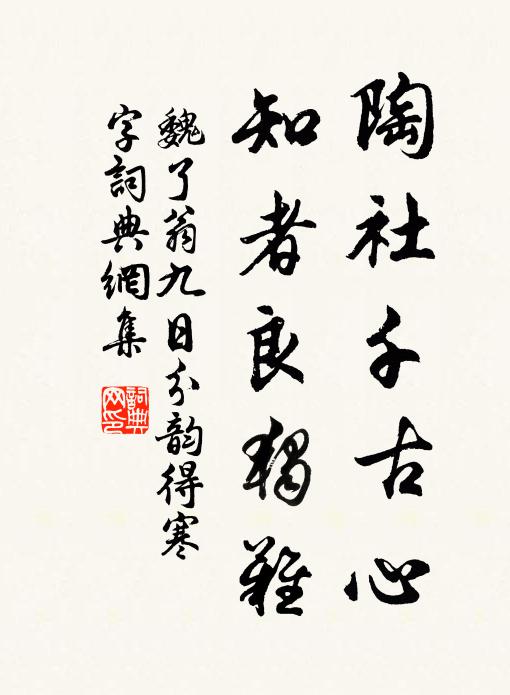 陶社千古心
知者良獨難
魏了翁九日分韵得寒
字詞典網集
詞典
网印